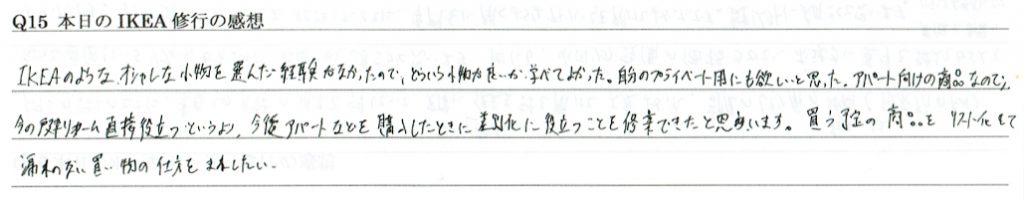 Q15 本日のIKEA修行の感想
IKEAのようなオシャレな小物を選んだ経験がなかったので、どういう小物が良いか学べてよかった。自分のプライベート用にも欲しいと思った。アパート向けの商品なので、
今の戸建リフォーム直接役立つというより、今後アパートなどを購入したときに差別化に役立つことを修業できたと思います。買う予定の商品をリスト化して
漏れのない買い物の仕方をまねしたい。